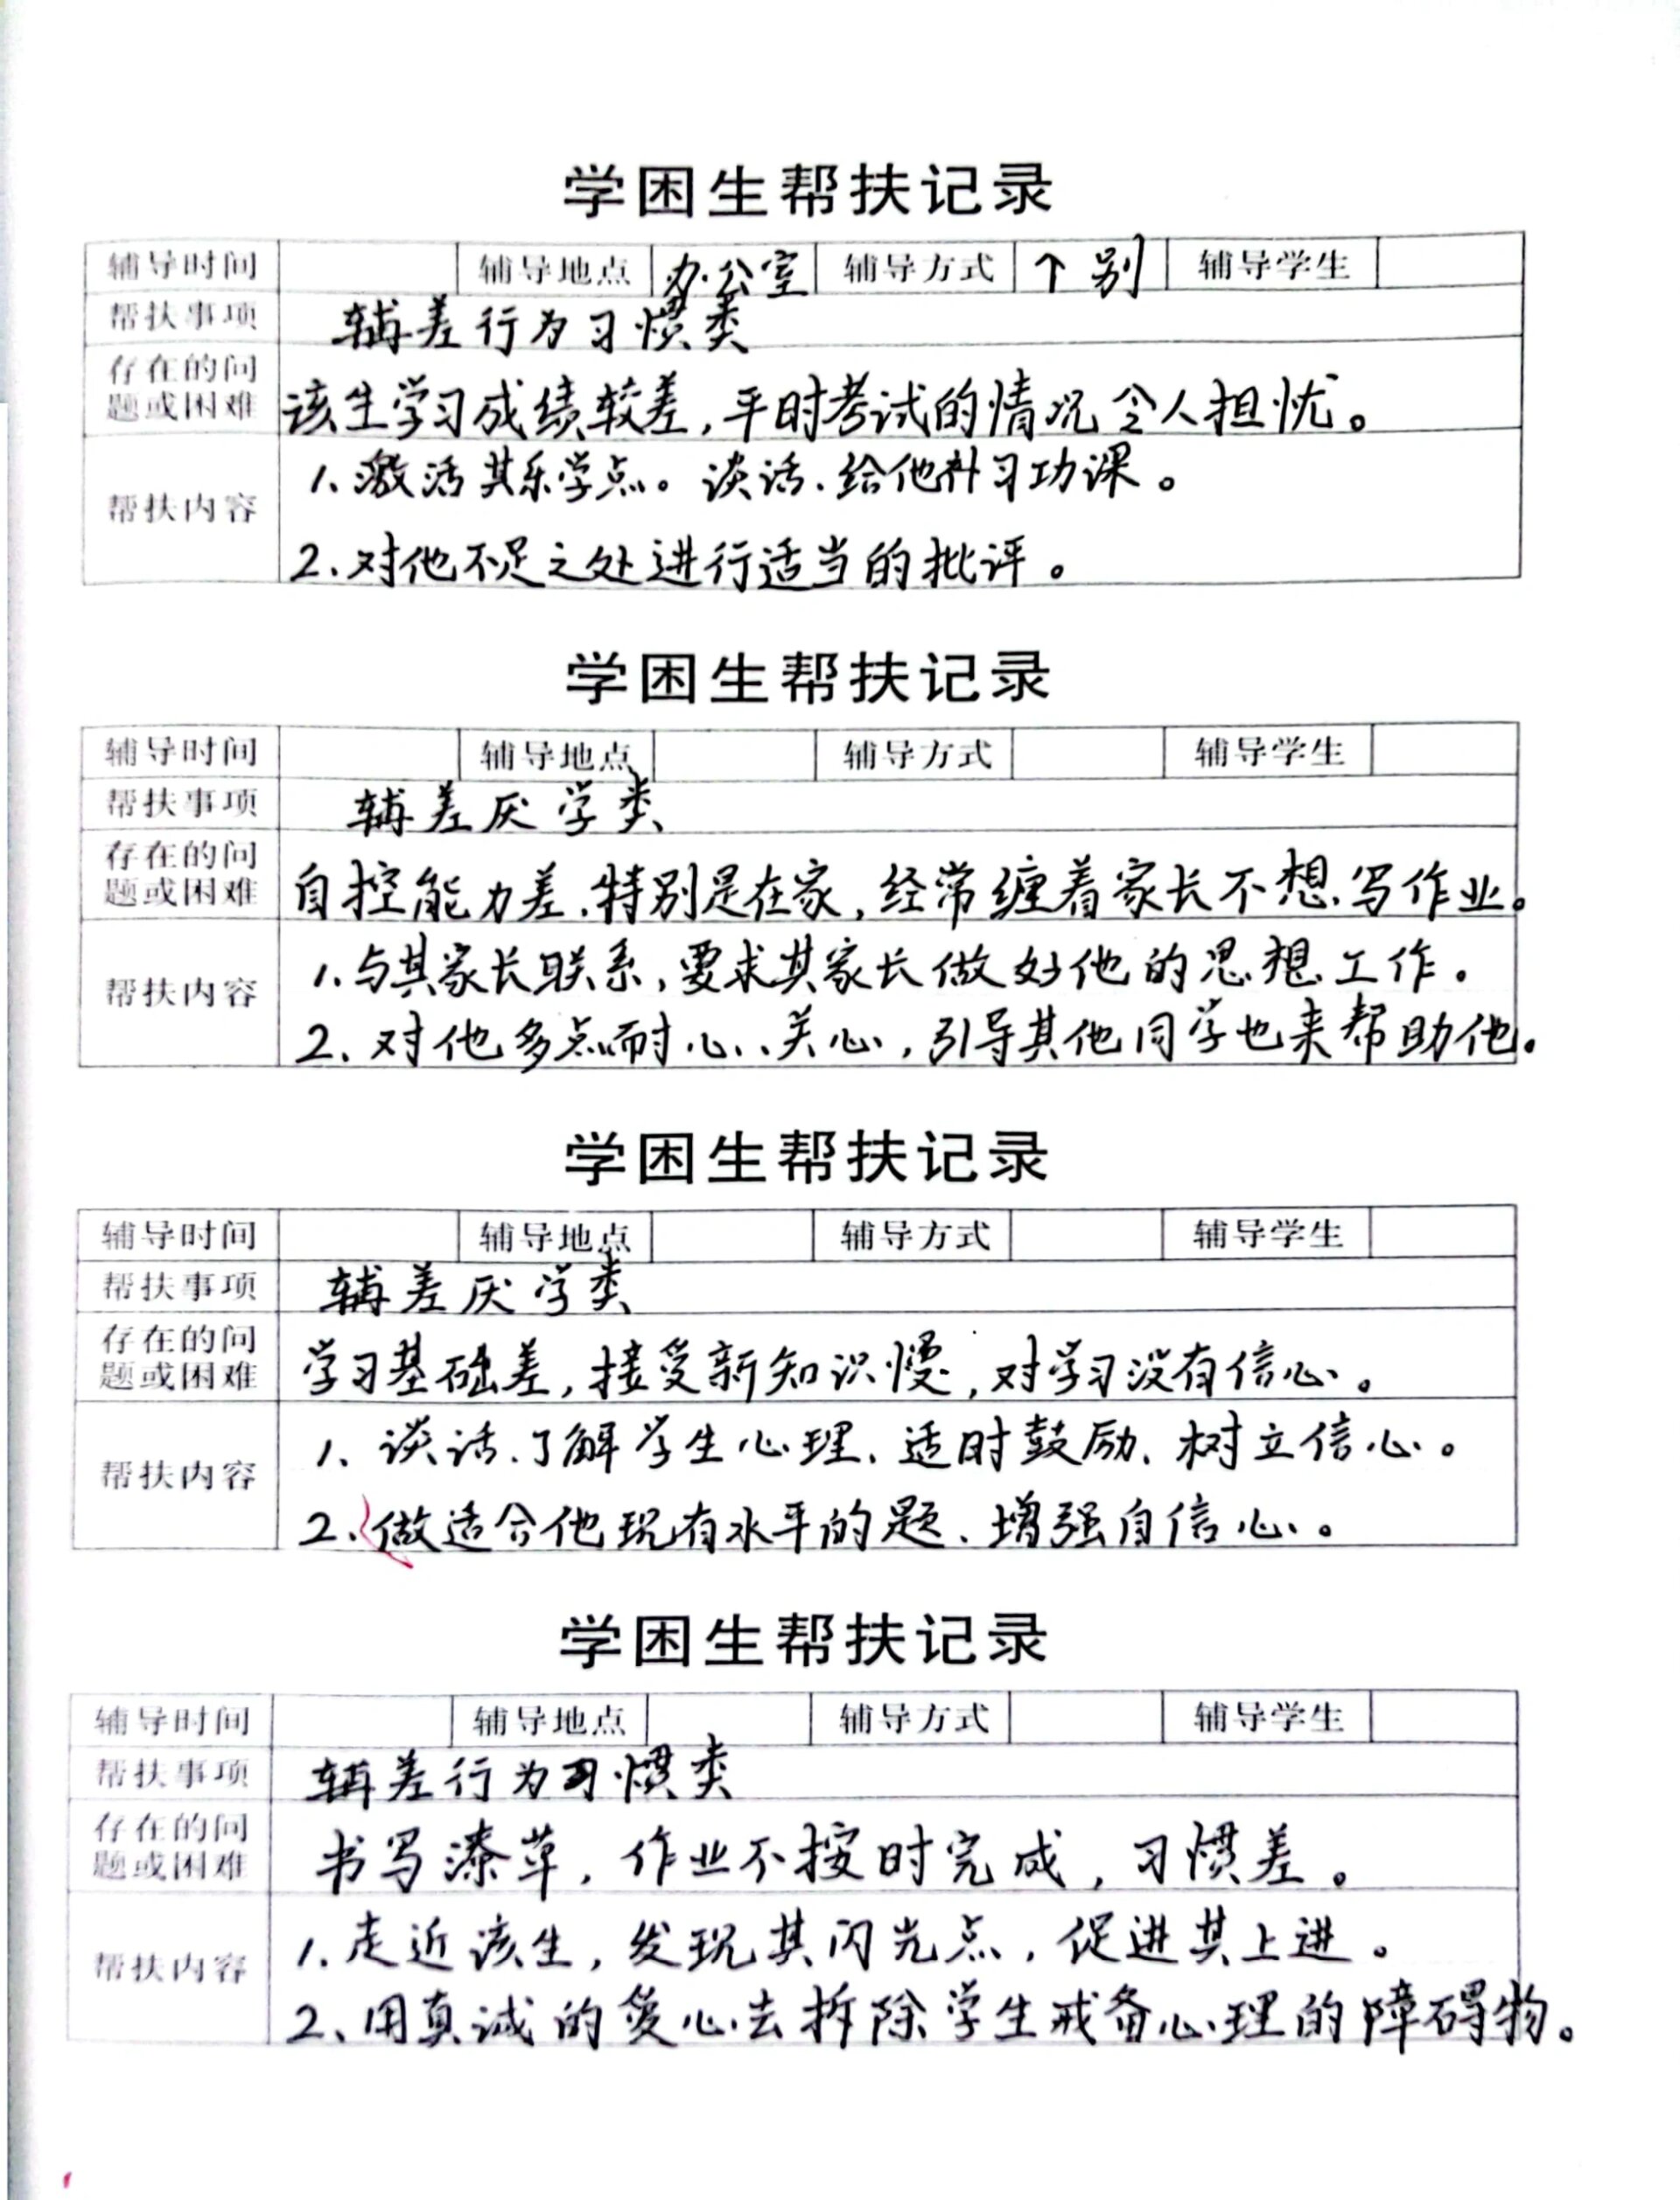 学困生帮扶记录
辅导时间 辅导地点 办公室 辅导方式 个别 辅导学生
帮扶事项 辅差行为习惯类
存在的问题或困难 该生学习成绩较差,平时考试的情况令人担忧。
帮扶内容 1、激活其乐学点。谈话、给他补习功课。
2、对他不足之处进行适当的批评。
学困生帮扶记录
辅导时间 辅导地点 辅导方式 辅导学生
帮扶事项 辅差厌学类
存在的问题或困难 自控能力差、特别是在家,经常缠着家长不想写作业。
帮扶内容 1、与其家长联系,要求其家长做好他的思想工作。
2、对他多点耐心、关心,引导其他同学也来帮助他。
学困生帮扶记录
辅导时间 辅导地点 辅导方式 辅导学生
帮扶事项 辅差厌学类
存在的问题或困难 学习基础差,接受新知识慢,对学习没有信心。
帮扶内容 1、谈话、了解学生心理、适时鼓励、树立信心。
2、做适合他现有水平的题、增强自信心。
学困生帮扶记录
辅导时间 辅导地点 辅导方式 辅导学生
帮扶事项 辅差行为习惯类
存在的问题或困难 书写潦草,作业不按时完成,习惯差。
帮扶内容 1、走近该生,发现其闪光点,促进其上进。
2、用真诚的爱心去拆除学生戒备心理的障碍物。